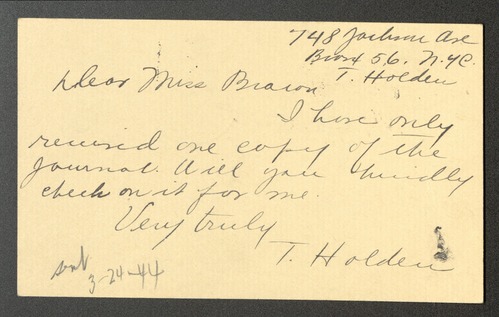 748 Jackson Ave
Bronx 56. N.Y.C.
T. Holden
Dear Miss Brown
I have only
received one copy of the
journal. Will you kindly
check on it for me.
Very truly
T. Holden
sent
3-24-44